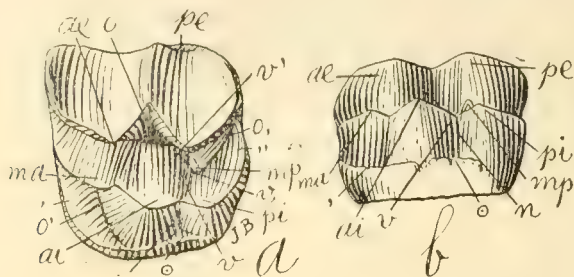 ae o pe
v'
o,
"
ma mp
v,
o' pi
ai v JB a
o
ae pe
pi
ma mp
' ai v o n
b